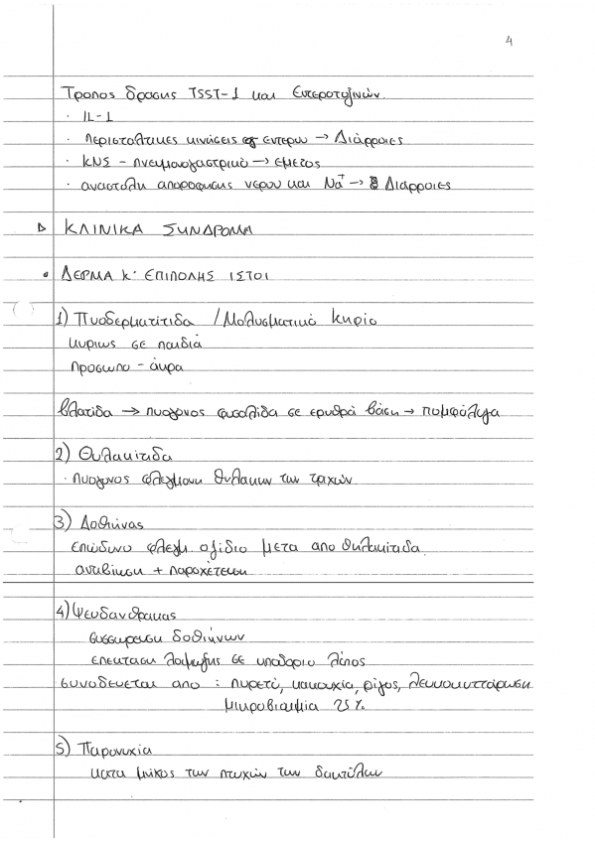 4
Τροπος δρασης TSST-1 και Εντεροτοξινών
· IL-1
· περισταλτικες κινήσεις εντερω → Διάρροιες
· ΚΝΣ - πνευμονογαστρικό → εμετος
· αναστολη απορροφησης νερου και Na+ → Διάρροιες
▷ ΚΛΙΝΙΚΑ ΣΥΝΔΡΟΜΑ
• ΔΕΡΜΑ κ' ΕΠΙΠΟΛΗΣ ΙΣΤΟΙ
1) Πυοδερματίτιδα / Μολυσματικό κηρίο
κυριως σε παιδιά
προσωπο - άκρα
βλατίδα → πυογονος φυσαλίδα σε ερυθρά βάση → πομφόλυγα
2) Θυλακίτιδα
· πυογονος φλεγμονη θυλακων των τριχών
3) Δοθιήνας
επώδυνο φλεγμ οζίδιο μετα απο θυλακίτιδα
αντιβίωση + παροχέτευση
4) Ψευδανθρακας
συσσωρευση δοθιήνων
επεκταση λοιμωξης σε υποδόριο λίπος
συνοδευεται απο : πυρετό, κακουχία, ρίγος, λευκοκυττάρωση
μικροβιαιμία 25%
5) Παρονυχία
κατα μήκος των πτυχών των δακτύλων